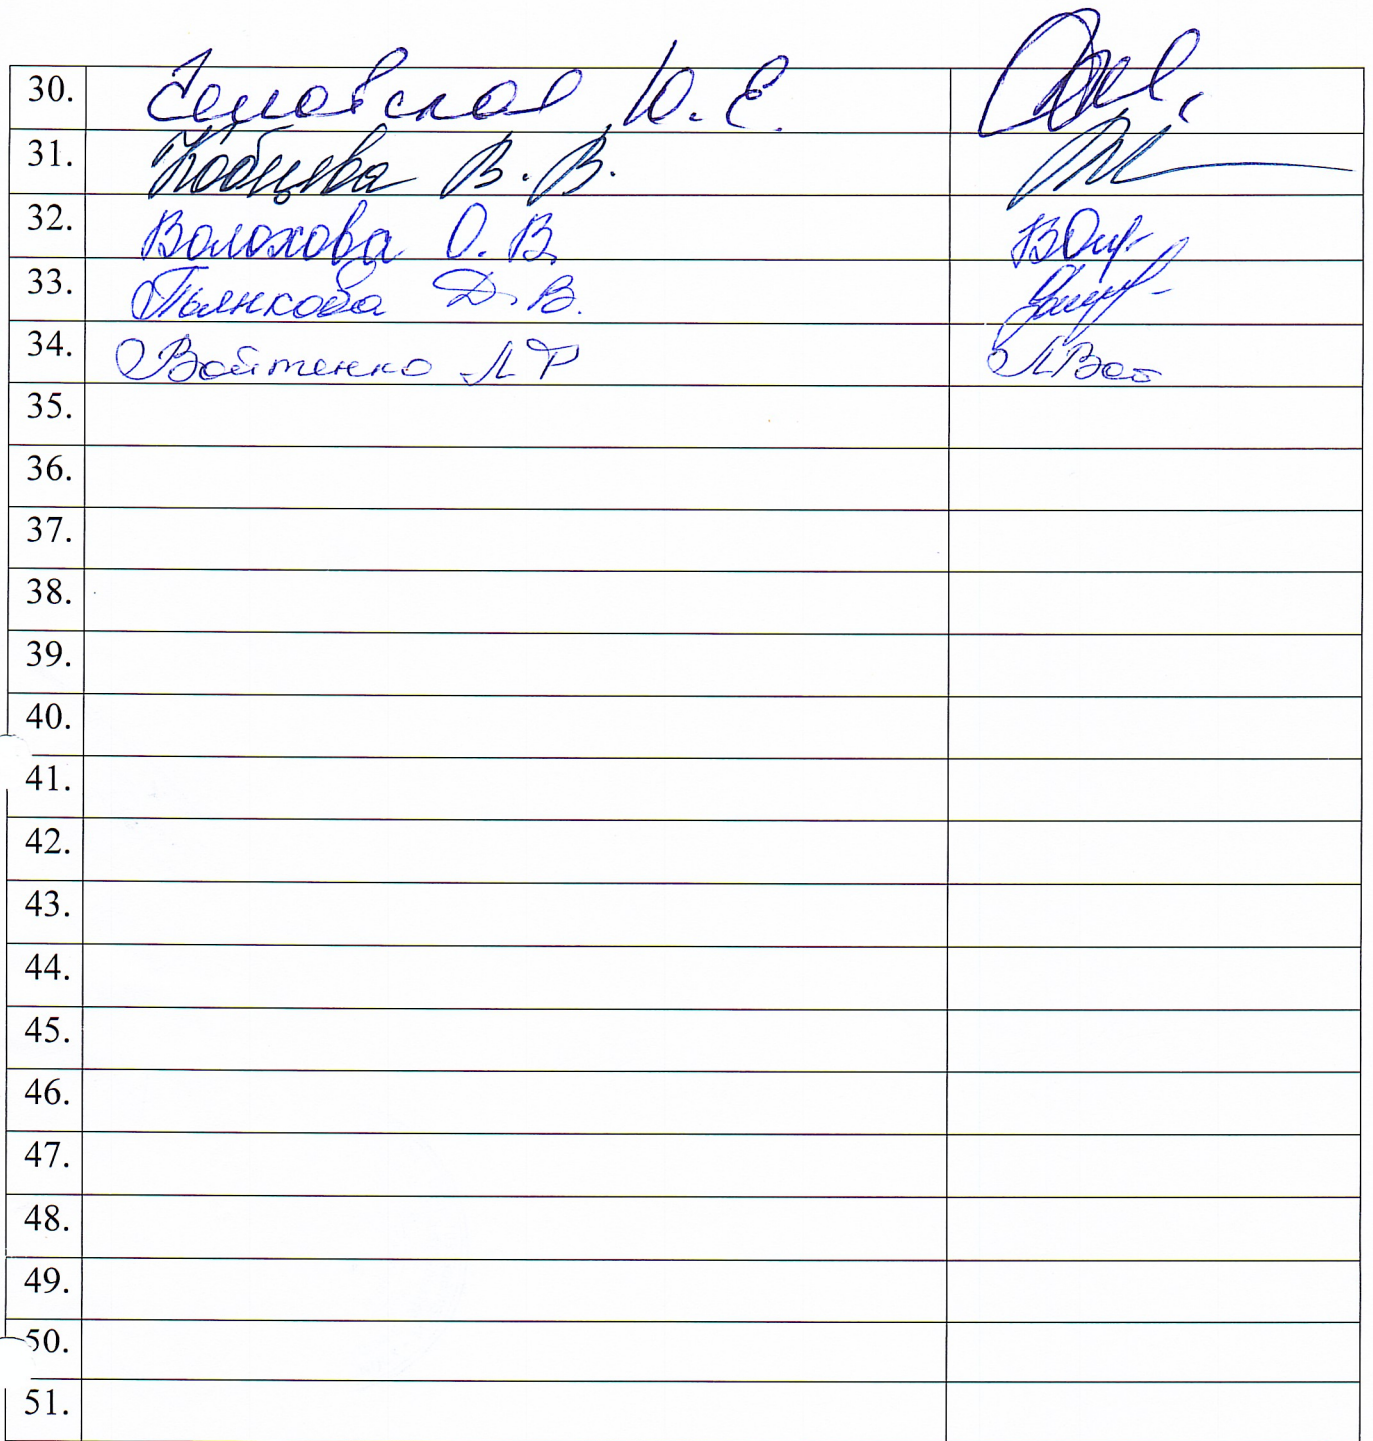 30. Ю. Е.
31. Кобцева В. В.
32. Волохова О. В.
33. Пьянкова Д. В.
34. Войтенко Л Р
35.
36.
37.
38.
39.
40.
41.
42.
43.
44.
45.
46.
47.
48.
49.
50.
51.